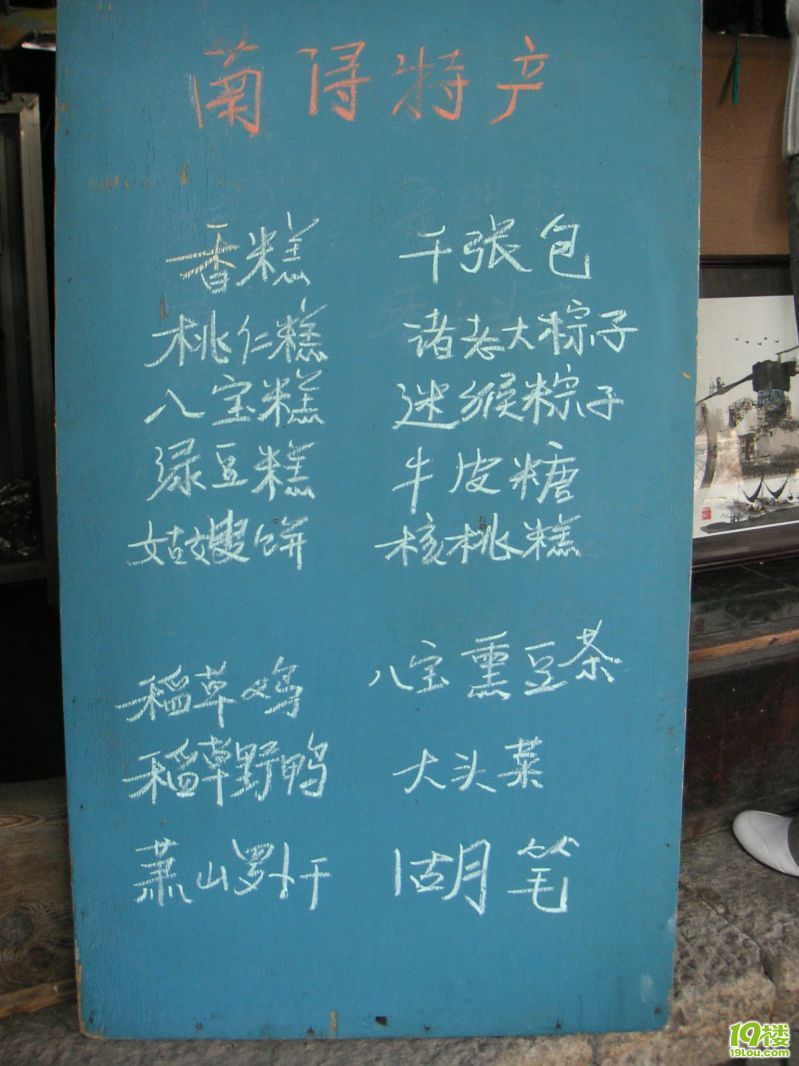 南浔特产
香糕 千张包
桃仁糕 诸老大粽子
八宝糕 迷猴粽子
绿豆糕 牛皮糖
姑嫂饼 核桃糕
稻草鸡 八宝熏豆茶
稻草野鸭 大头菜
萧山罗卜干 湖笔
19楼
19lou.com